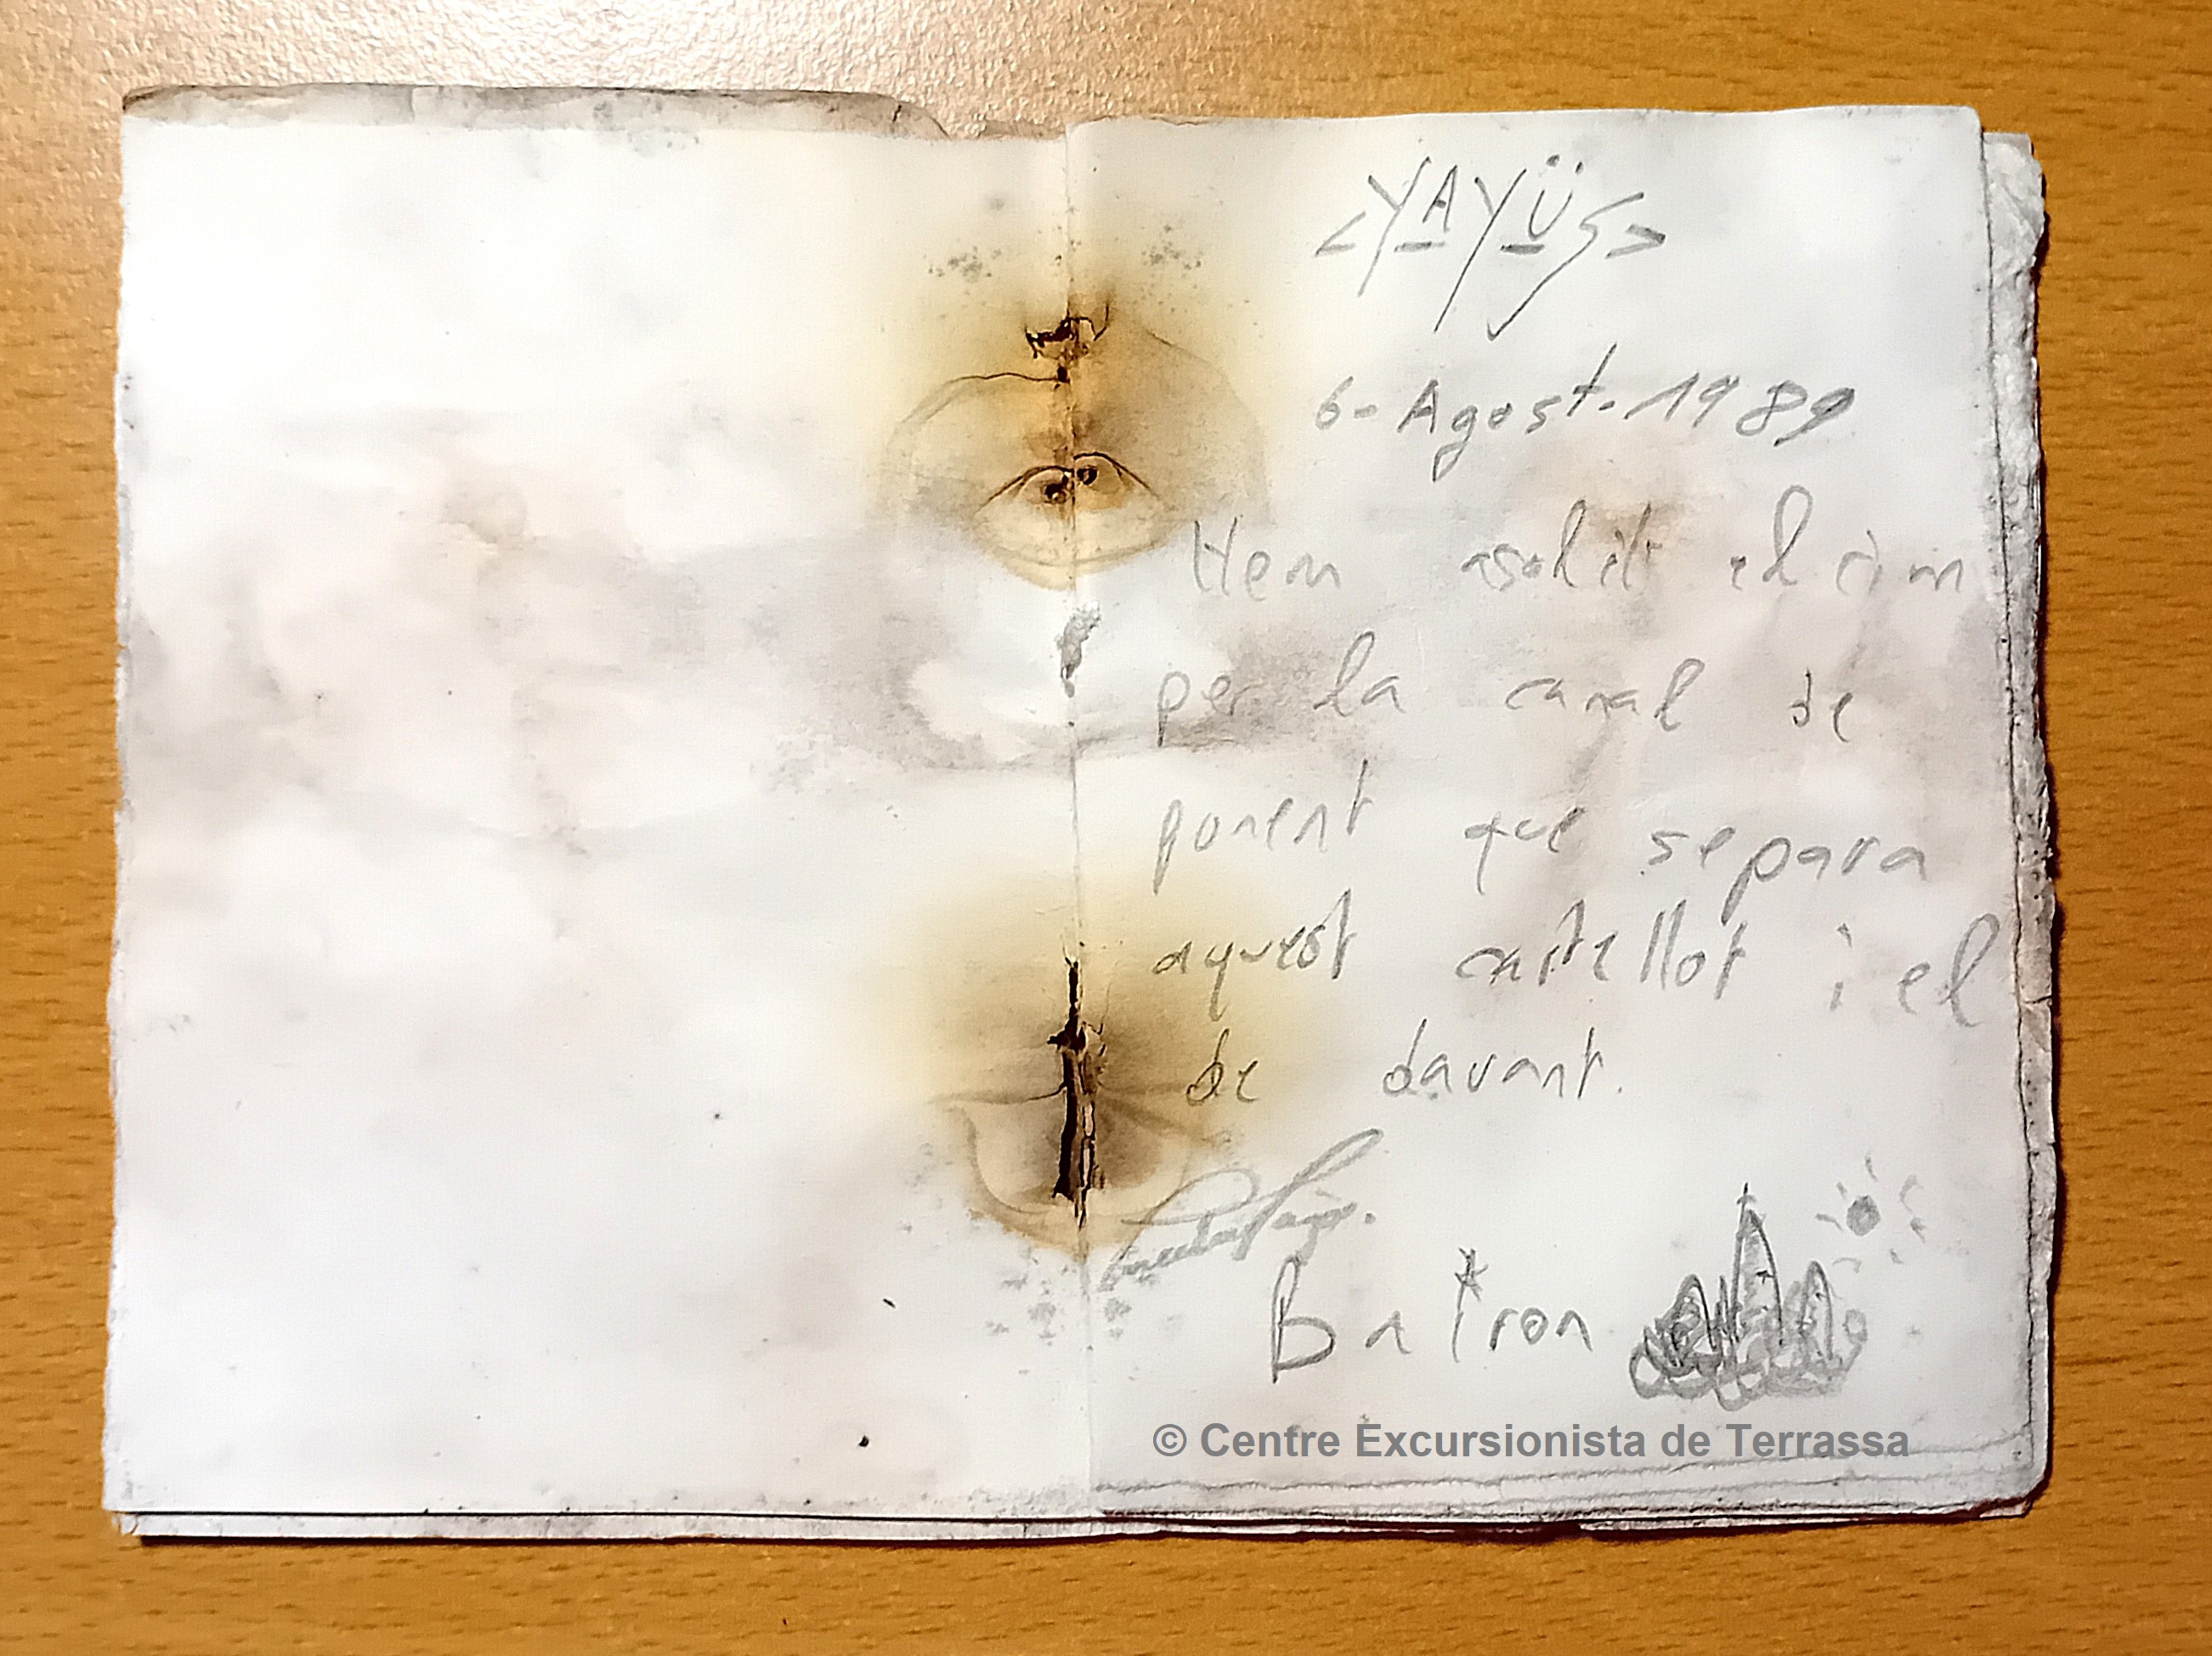 <YAYÜS>
6-Agost.1989
Hem assolit el cim
per la canal de
ponent que separa
aquest castellot i el
de davant.
© Centre Excursionista de Terrassa